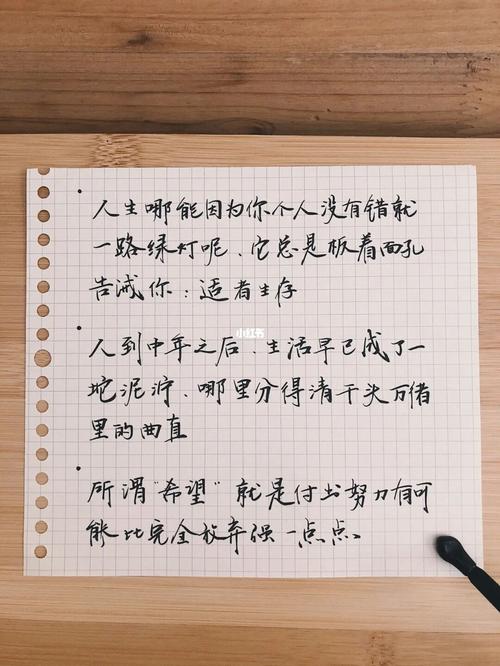 人生哪能因为你个人没有错就
一路绿灯呢、它总是板着面孔
告诫你：适者生存
小红书
人到中年之后、生活早已成了一
坨泥泞、哪里分得清千头万绪
里的曲直
所谓“希望”就是付出努力有可
能比完全放弃强一点点。